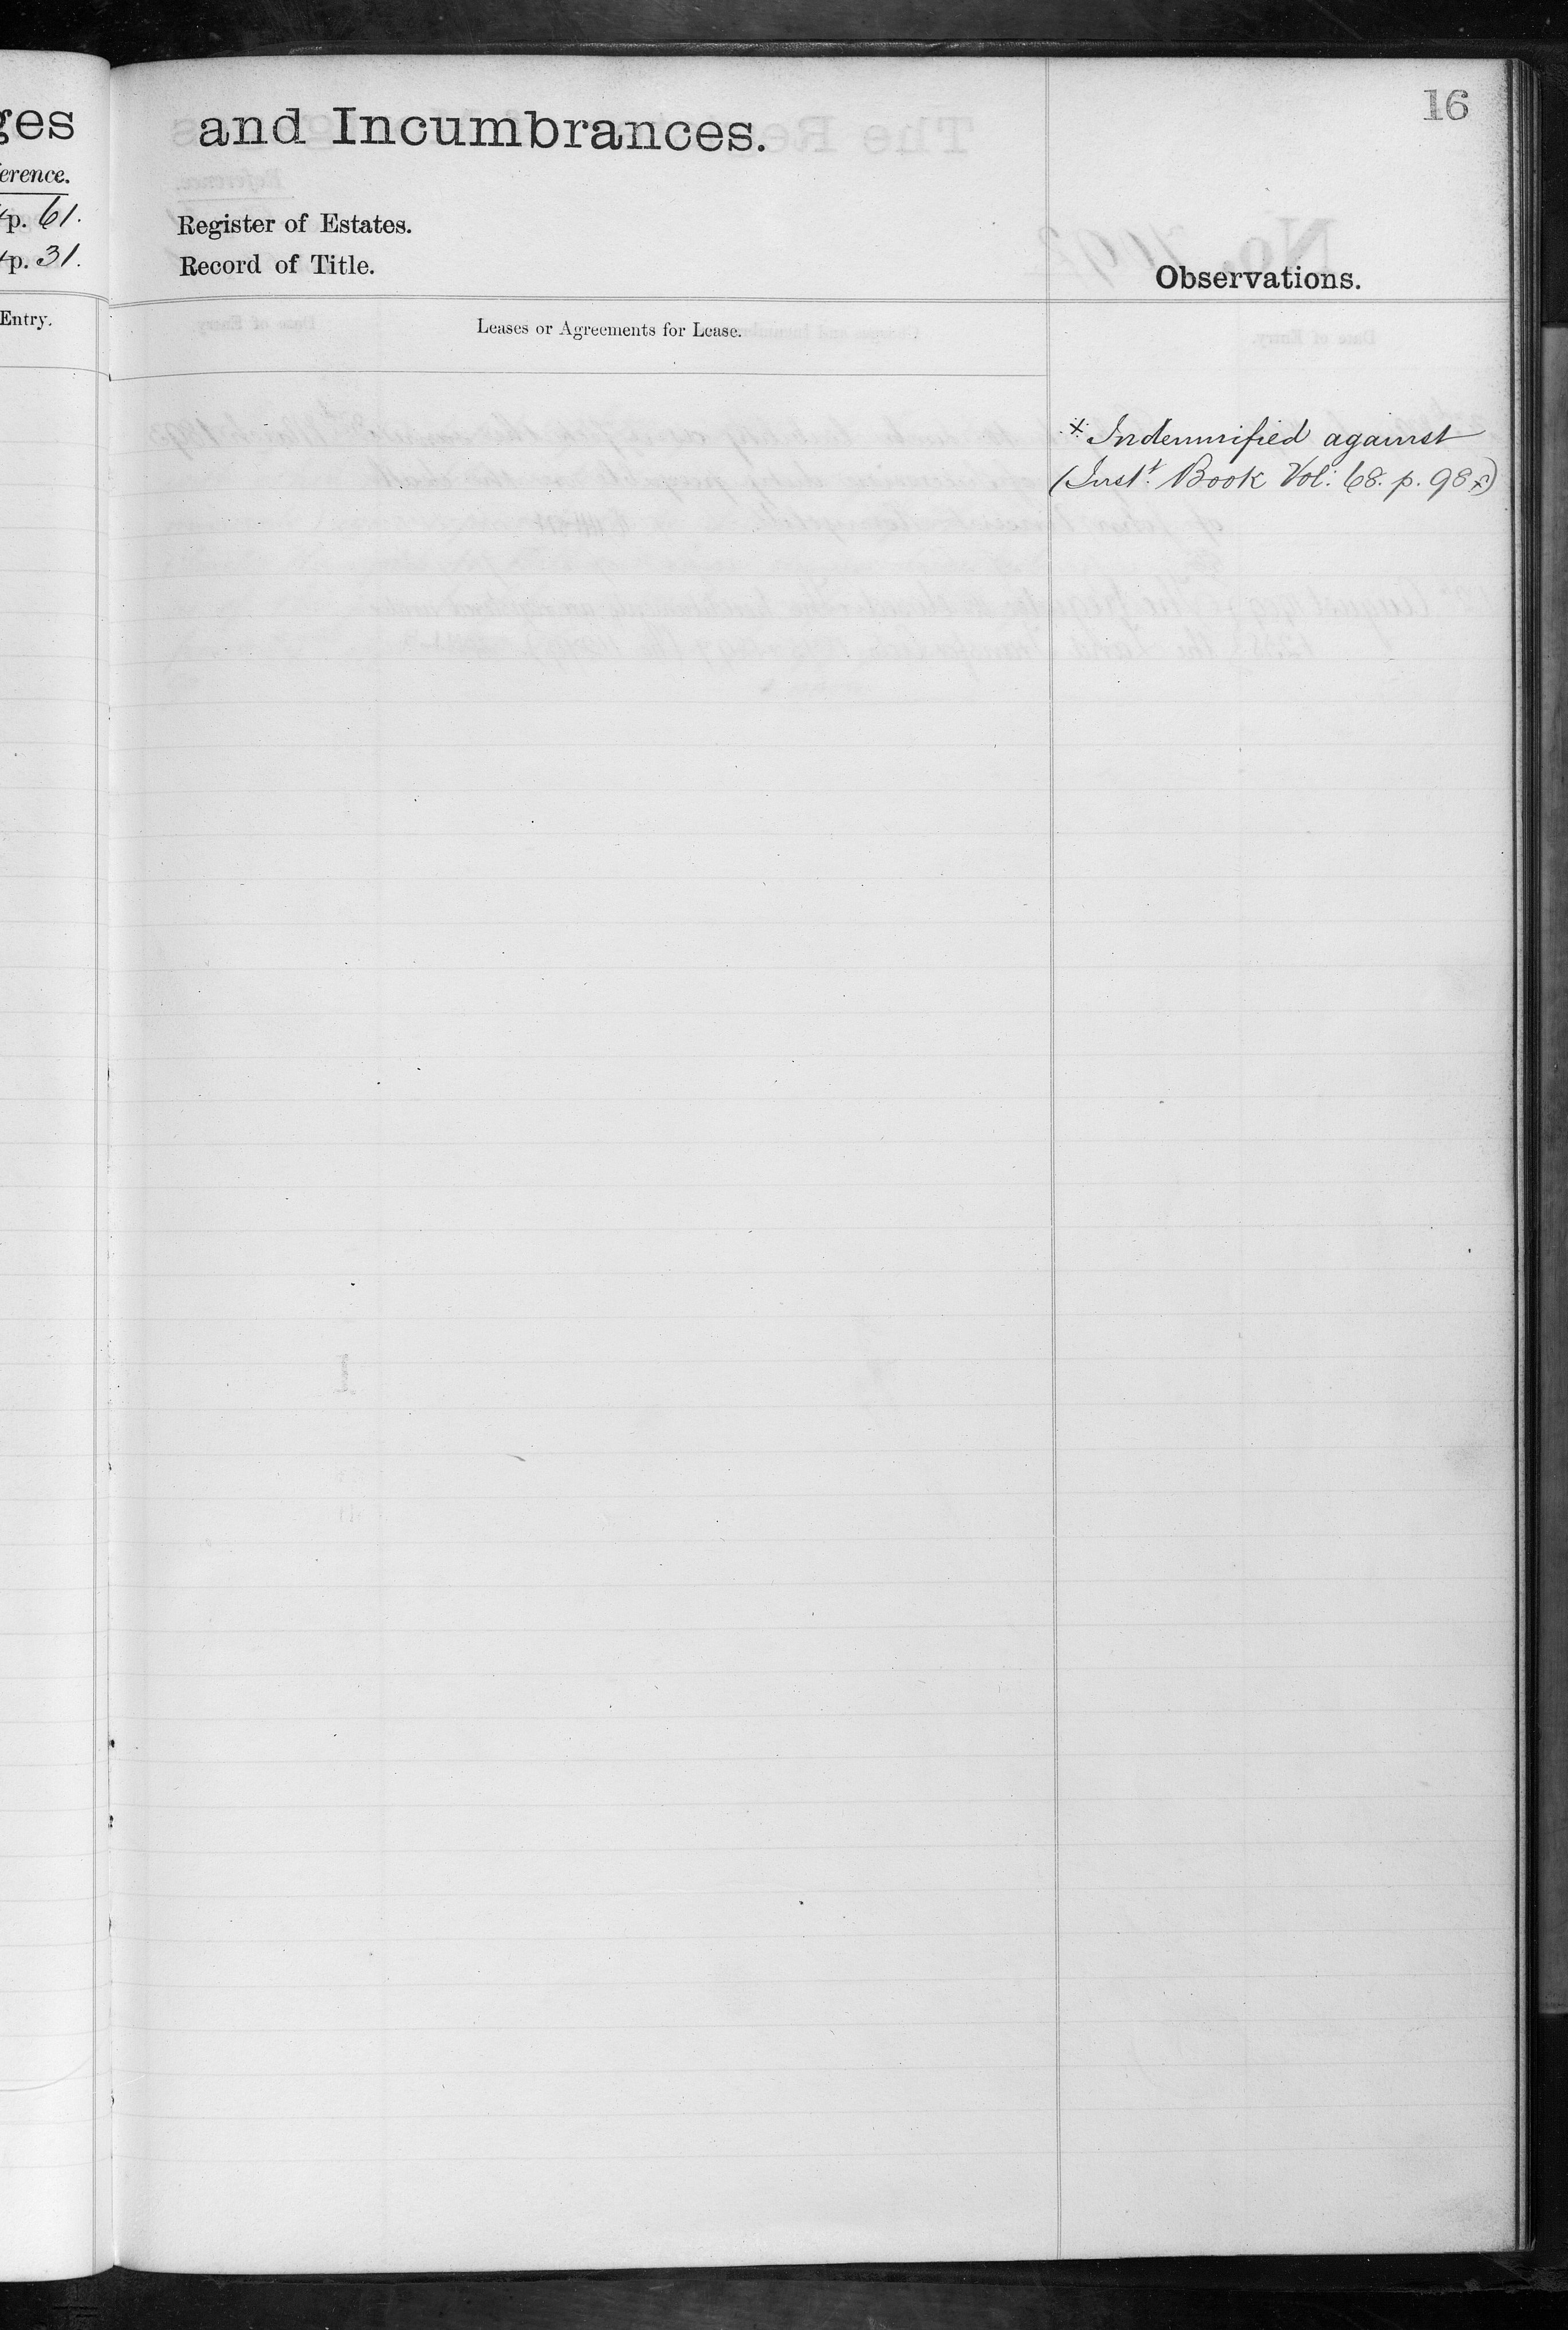 16
ges
and Incumbrances.
erence.
p. 61.
Register of Estates.
p. 31.
Record of Title.
Observations.
Entry.
Leases or Agreements for Lease.
* Indemnified against
(Inst.t Book Vol: 68. p. 98